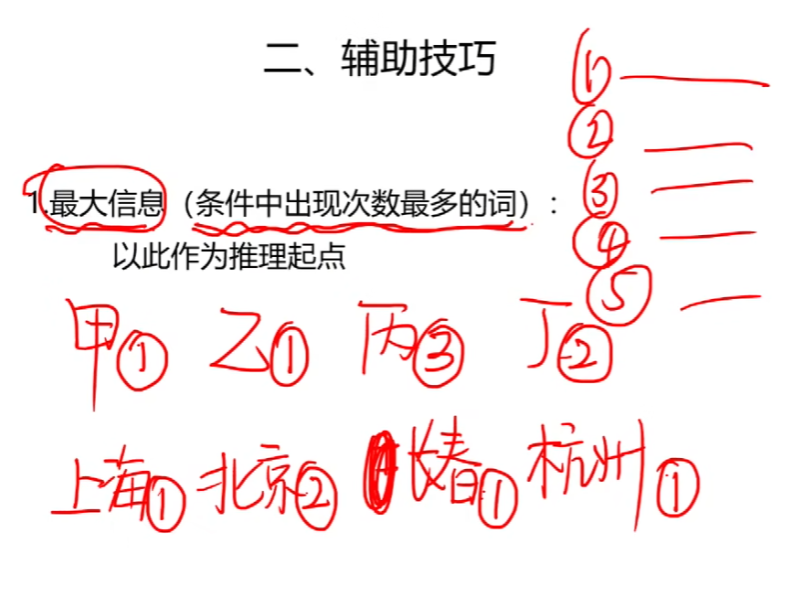 二、辅助技巧
①
②
③
④
⑤
1.最大信息（条件中出现次数最多的词）：
以此作为推理起点
甲① 乙① 丙③ 丁②
上海① 北京② 长春① 杭州①